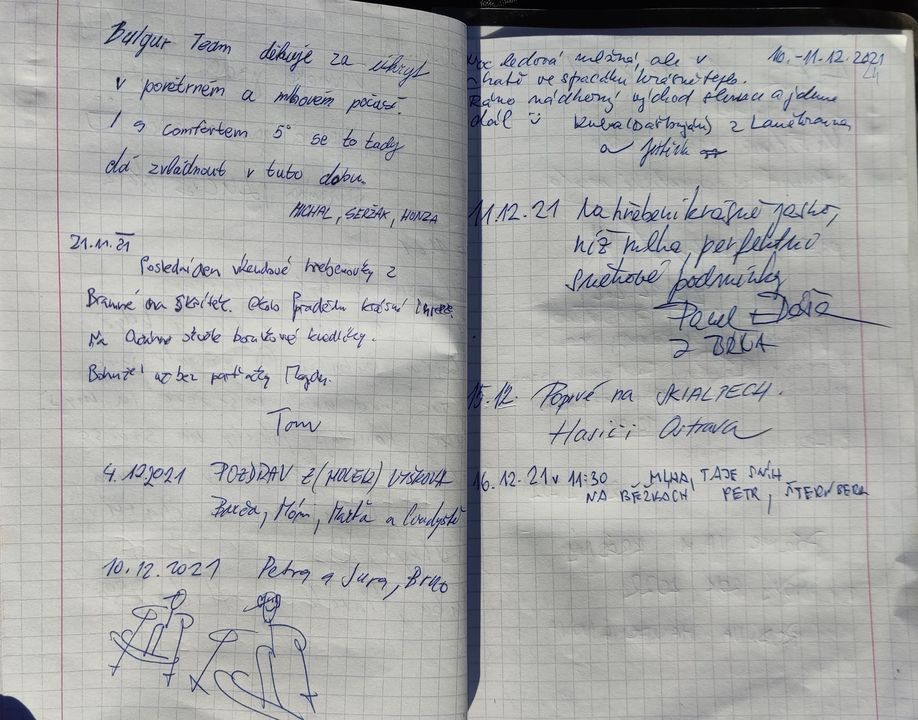 Bulgur Team děkuje za úkryt
v povětrném a mlhovém počasí.
I s comfortem 5° se to tady
dá zvládnout v tuto dobu.
MICHAL, SERŽAK, HONZA
21.11.21
Poslední den víkendové hřebenovky z
Branné na Skřítek. Okolo Pradědu krásná
Na skvělé borůvkové knedlíky.
Bohužel už bez parťačky Magdy.
Tom
4.12.2021 POZDRAV Z (HOLEK) VYŠKOVA
Barča, Móňa, Maťa a
10.12.2021 Petra a Jura, Brno
10.-11.12.2021
Noc ledová mlžná, ale v
chatě ve spacáku krásné teplo.
Ráno nádherný východ slunce a jdeme
dál Kuba z Lanškrouna
a Jetřich
11.12.21 Na hřebeni krásně jasno,
níž mlha, perfektní
sněhové podmínky
Pavel + Dáša
z BRNA
15.12. Poprvé na SKIALPECH.
Hasiči Ostrava
16.12.21 v 11:30 MLHA, TAJE SNÍH
NA BĚŽKÁCH PETR, ŠTERNBERK